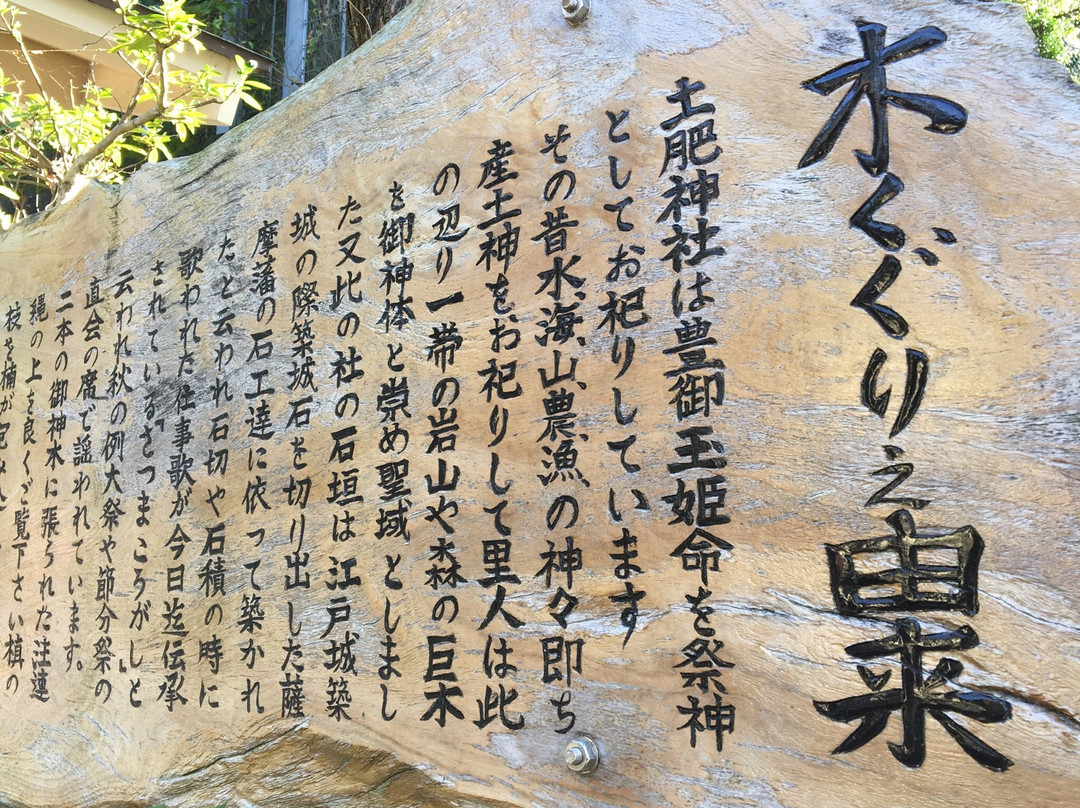 木くぐりえ由来
土肥神社は豊御玉姫命を祭神
としてお祀りしています
その昔水、海、山、農、漁、の神々即ち
産土神をお祀りして里人は此
の辺り一帯の岩山や森の巨木
を御神体と崇め聖域としまし
た又此の社の石垣は江戸城築
城の際築城石を切り出した薩
摩藩の石工達に依って築かれ
たと云われ石切や石積の時に
歌われた仕事歌が今日迄伝承
されている「さつまころがし」と
云われ秋の例大祭や節分祭の
直会の席で謡われています。
二本の御神木に張られた注連
縄の上を良くご覧下さい槙の
枝を楠が